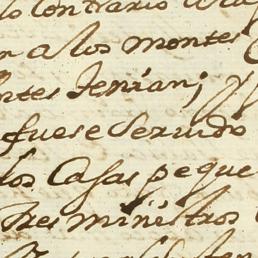 lo contrario
a los montes
ntes tenian;
fuese servido
los Casas peque
tres ministros